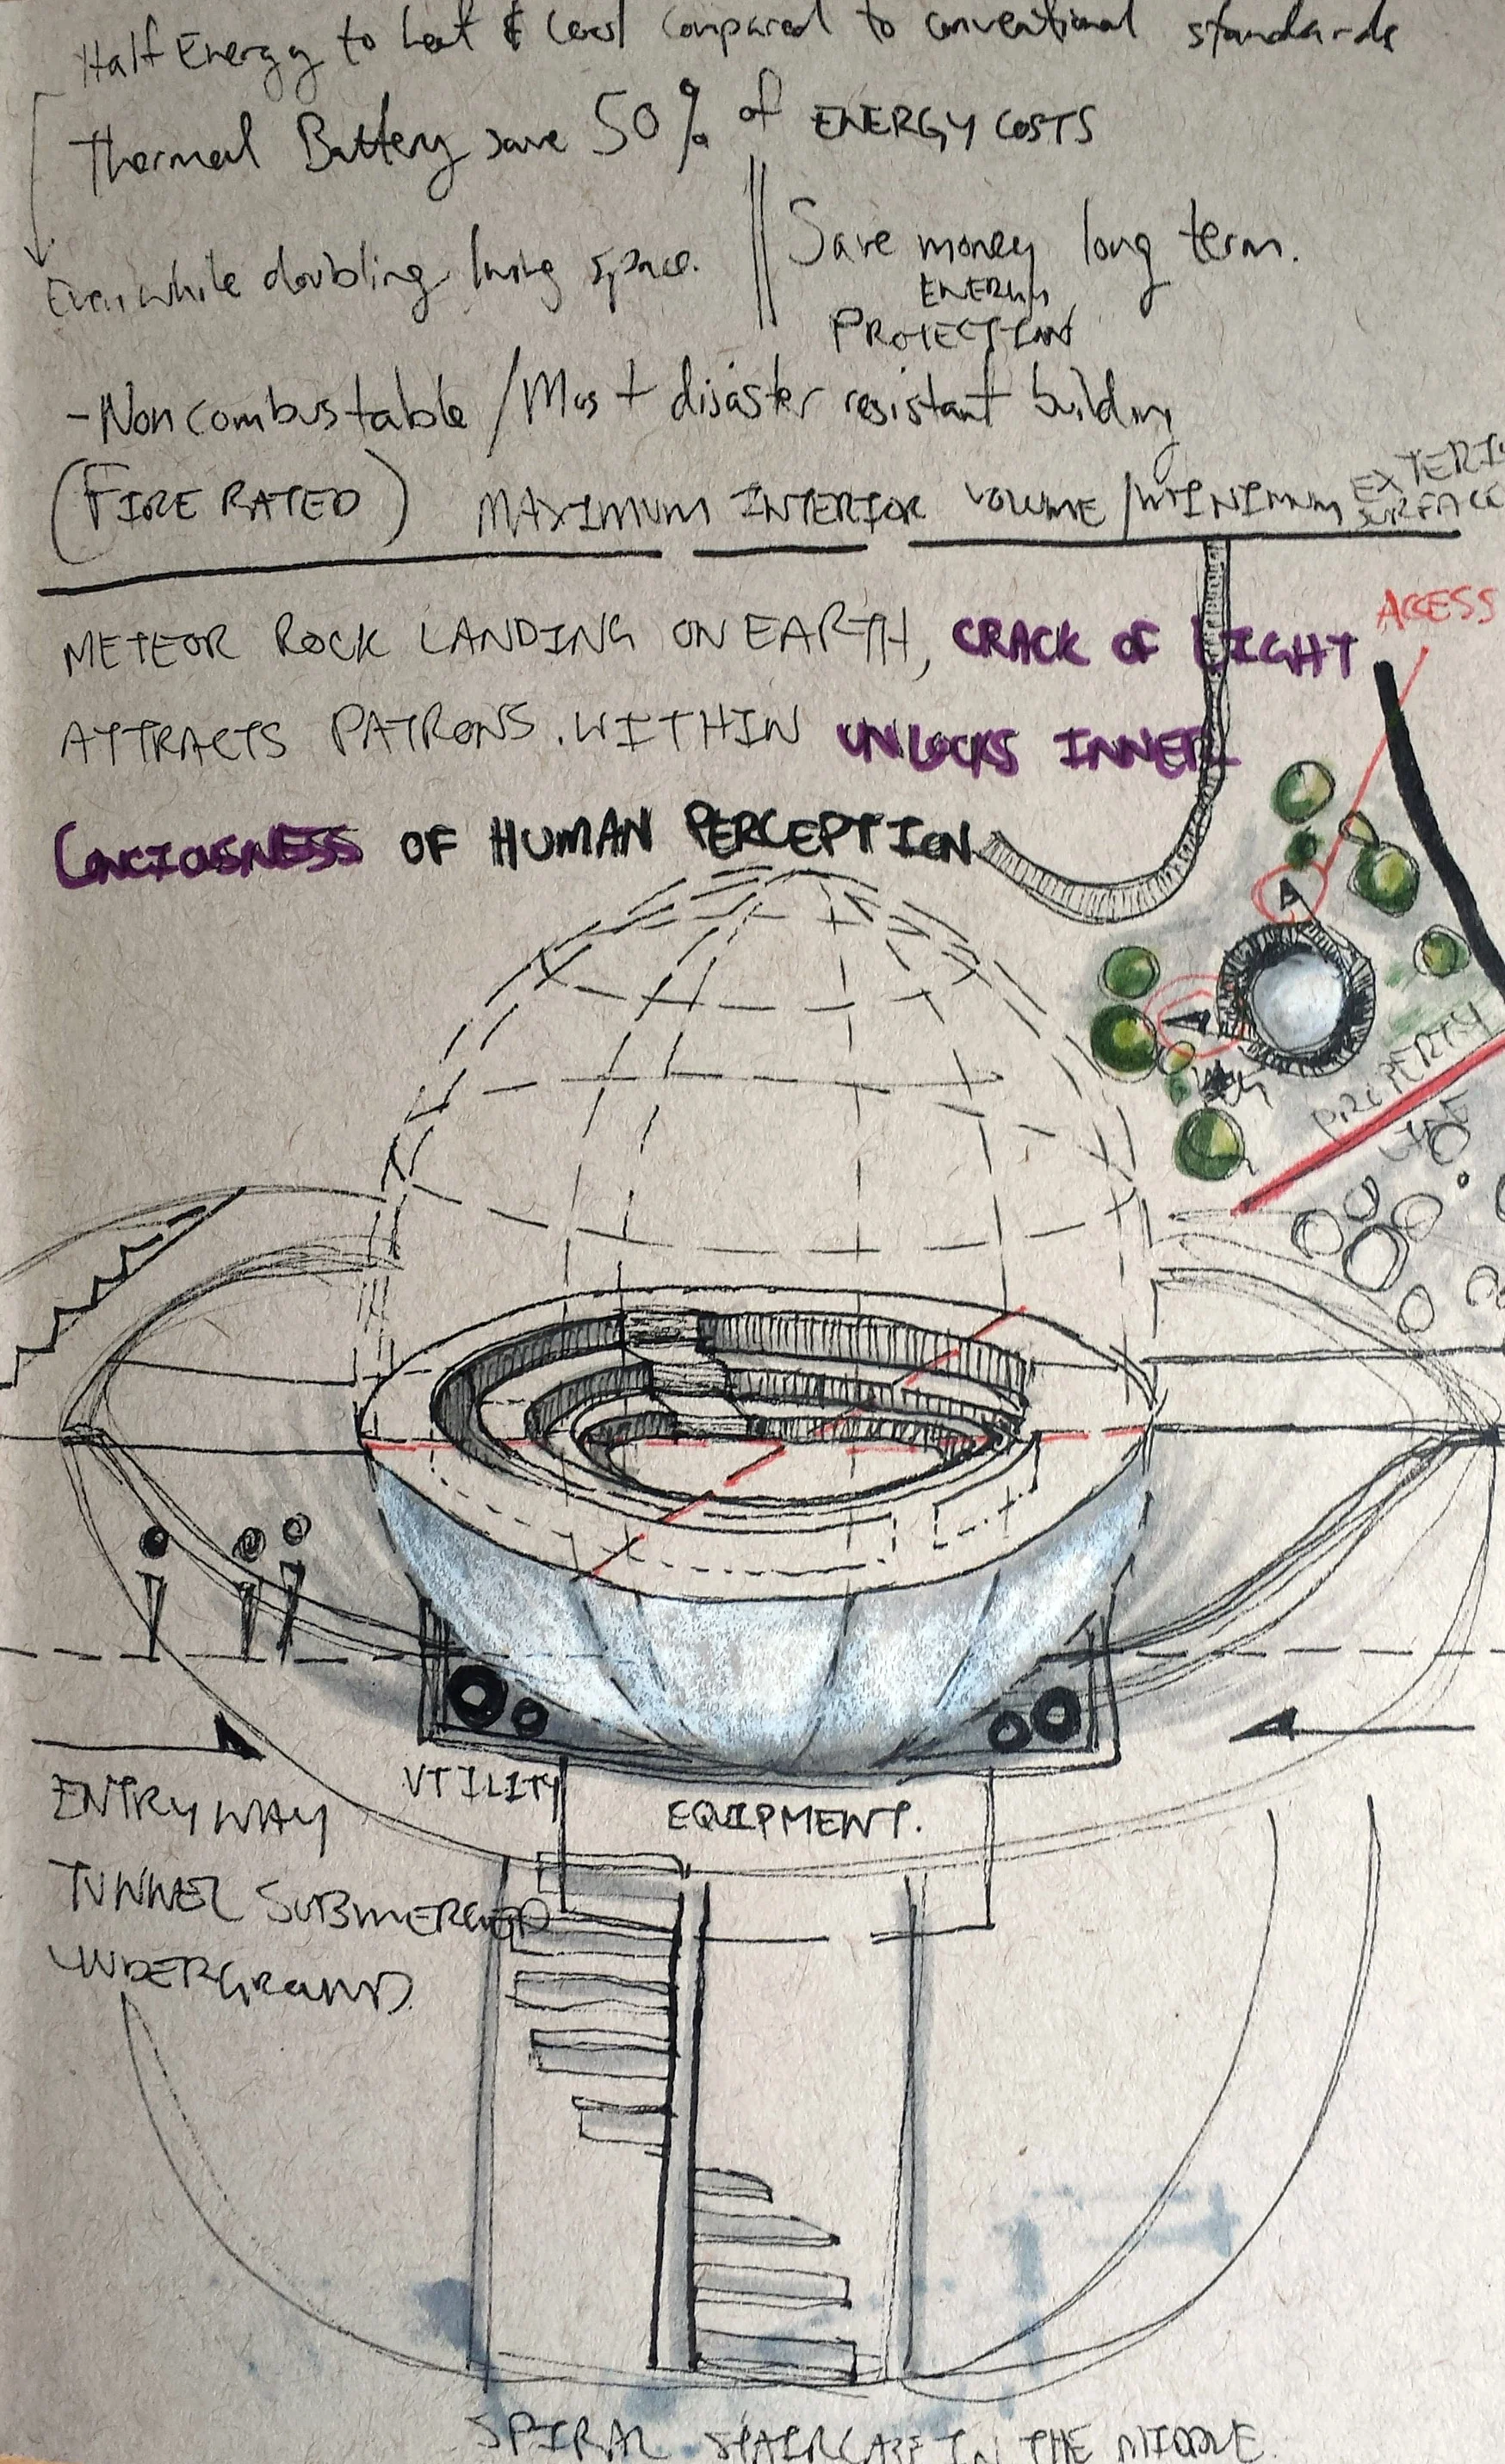 Half Energy to heat & cool compared to conventional standards
Thermal Battery save 50% of ENERGY COSTS
Even while doubling living space.
Save money long term.
ENERGY
PROTECTION
-Noncombustable / Most disaster resistant building
(FIRE RATED) MAXIMUM INTERIOR VOLUME / MINIMUM EXTERIOR SURFACE
METEOR ROCK LANDING ON EARTH, CRACK OF LIGHT
ACESS
ATTRACTS PATRONS. WITHIN UNLOCKS INNER
CONCIOUSNESS OF HUMAN PERCEPTION
A
PROPERTY
LINE
ENTRYWAY
TUNNEL SUBMERGED
UNDERGROUND.
UTILITY
EQUIPMENT.
SPIRAL STAIRCASE IN THE MIDDLE